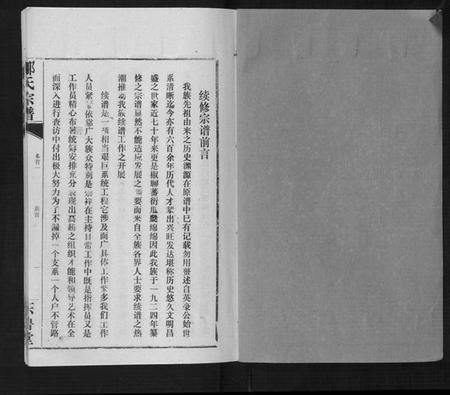 续修宗谱前言
我族先祖由来之历史渊源在原谱中已有记载勿用赘述自英豪公始世
系清晰迄今亦有六百余年历代人才辈出兴旺发达堪称历史悠久文明昌
盛之世家近七十年来更是椒聊蕃衍瓜瓞绵绵因此我族于一九二四年纂
修之宗谱显然不能适应发展之需要而来自全族各界人士要求续谱之热
潮推动我族续谱工作之开展
续谱是一项相当艰巨系统工程它涉及面广具体工作繁多我们工作
人员紧紧依靠广大族众特别是宗祥在主持日常工作中既是指挥员又是
工作员精心布署统筹安排充分表现出高超之组织才能和领导艺术在全
面深入进行查访中付出极大努力为了不漏掉一个支系一个人户不管路
氏宗谱
卷首